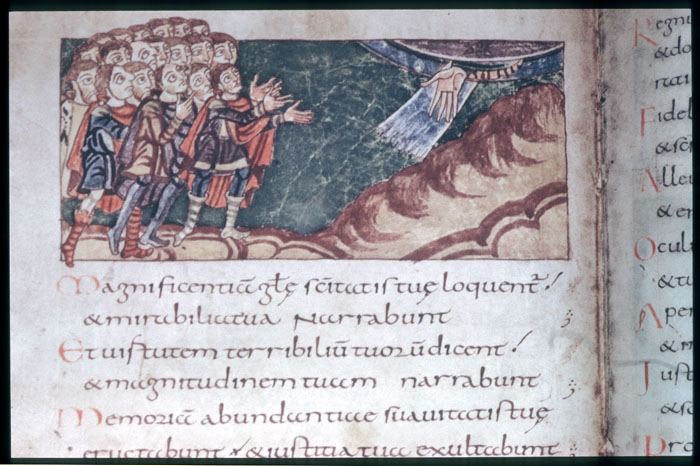 Magnificentiā glę sc̄itatis tuę loquent᷑
& mirabilia tua narrabunt
Et uirtutem terribiliū tuorū dicent
& magnitudinem tuam narrabunt
Memoriā abundantiae suauitatis tuę
eructabunt & iustitia tua exultabunt
Regn
& do
Fidel
& sc̄
Alle
& e
Ocul
& tu
Aper
& im
Just
& sc̄